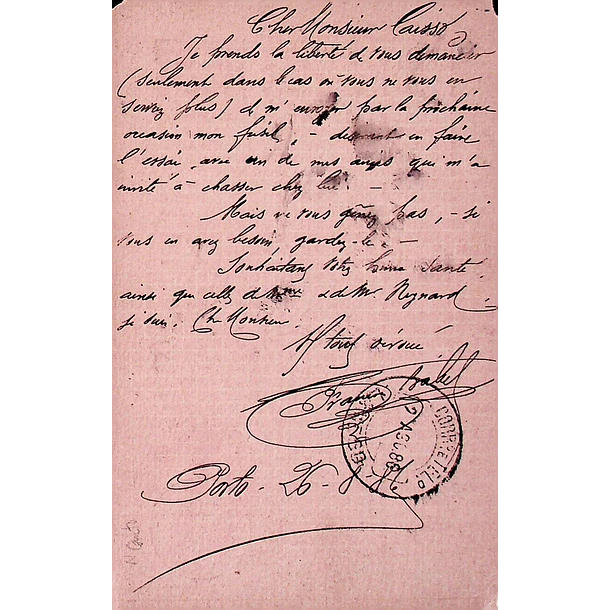 Cher Monsieur
Je prends la liberté de vous demander
(seulement dans le cas où vous ne vous en
servez plus) de m'envoyer par la prochaine
occasion mon fusil, – désirant en faire
l'essai avec un de mes amis qui m'a
invité à chasser chez lui. –
Mais ne vous gênez pas, – si
vous en avez besoin, gardez-le. –
Souhaitant votre bonne santé
ainsi que celle de Mme & de Mr. Reynard
je suis, Ch Monsieur.
Votre tout dévoué
Porto - 26 -
CORR E TELP
AGO 86